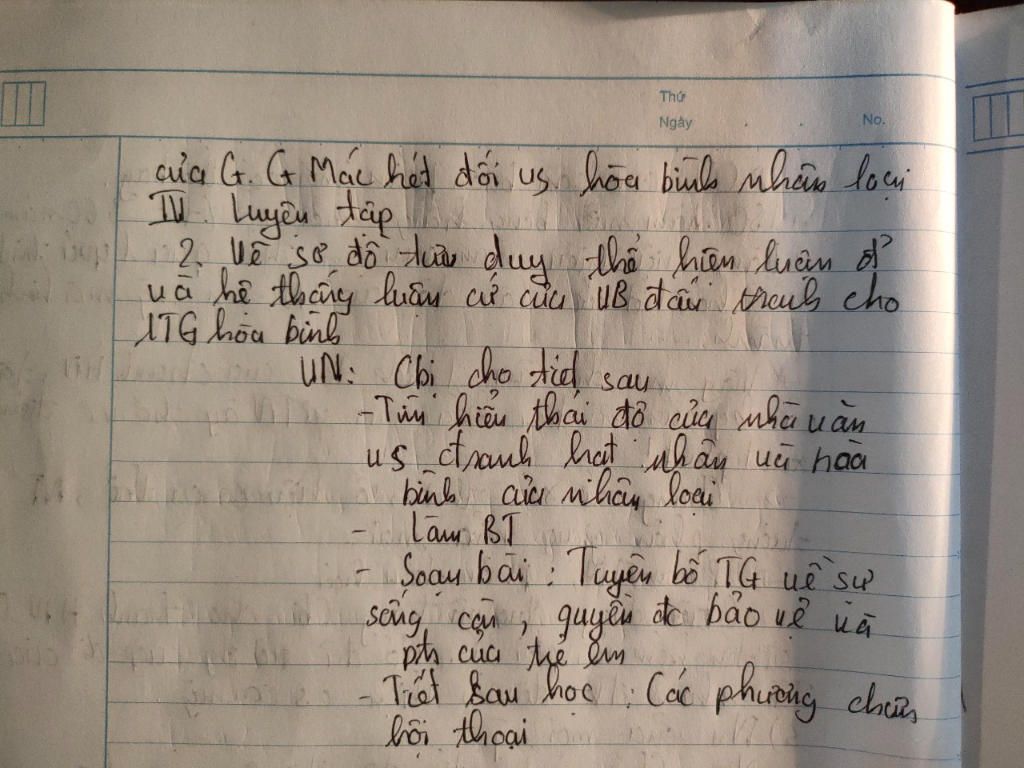 Thứ
Ngày . . No.
của G. G Mác két đối vs. hòa bình nhân loại
IV. Luyện tập
2. Vẽ sơ đồ tư duy thể hiện luận đ'
và hệ thống luận cứ của VB đấu tranh cho
1TG hòa bình
VN: Cbị cho tiết sau
- Tìm hiểu thái độ của nhà văn
vs ctranh hạt nhân và hòa
bình của nhân loại
- Làm BT
- Soạn bài : Tuyên bố TG về sự
sống còn, quyền đc bảo vệ và
ptr của trẻ em
- Tiết sau học : Các phương châm
hội thoại